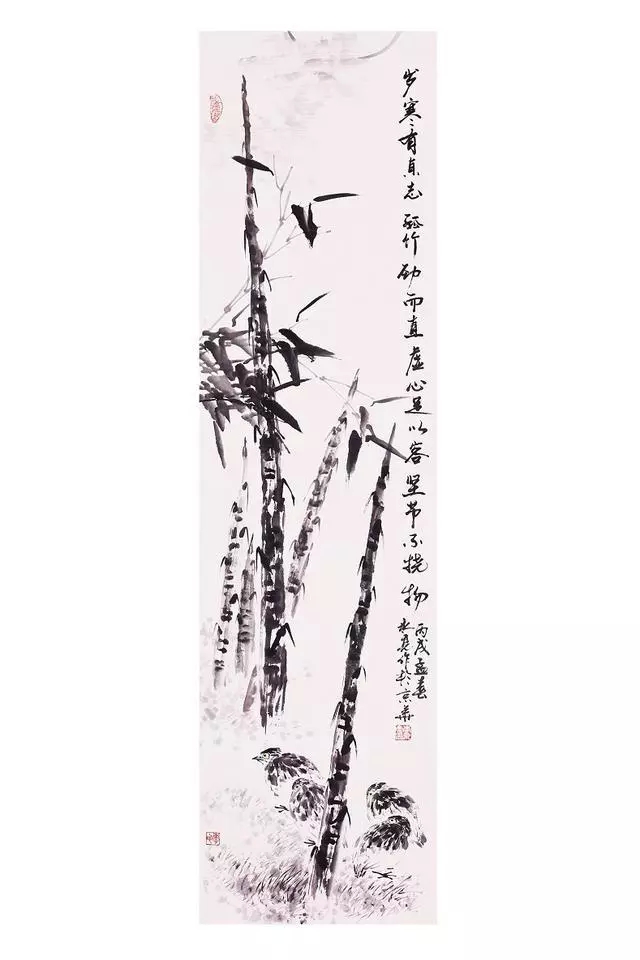 岁寒有贞志孤竹劲而直虚心足以容坚节不挠物
丙戌孟春
作於京華